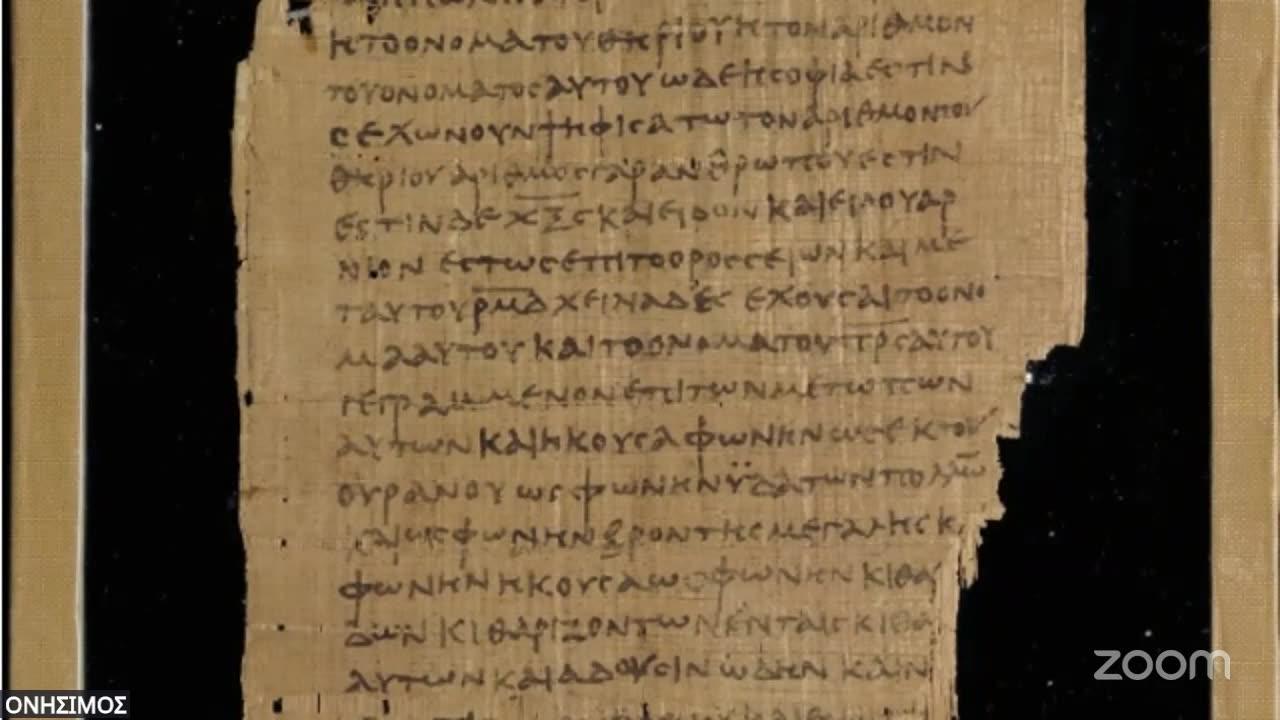 ΗΤΟΟΝΟΜΑΤΟΥΘΗΡΙΟΥΗΤΟΝΑΡΙΘΜΟΝ
ΤΟΥΟΝΟΜΑΤΟϹΑΥΤΟΥΩΔΕΗϹΟΦΙΑΕϹΤΙΝ
ΕΧΩΝΟΥΝΨΗΦΙϹΑΤΩΤΟΝΑΡΙΘΜΟΝΤΟΥ
ΘΗΡΙΟΥΑΡΙΘΜΟϹΓΑΡΑΝΘΡΩΠΟΥΕϹΤΙΝ
ΕϹΤΙΝΔΕΧ̅Ξ̅Ϲ̅ΚΑΙΕΙΔΟΝΚΑΙΕΙΔΟΥΑΡ
ΝΙΟΝΕϹΤΩϹΕΠΙΤΟΟΡΟϹϹΕΙΩΝΚΑΙΜΕ
ΤΑΥΤΟΥΡ̅Μ̅Δ̅ΧΕΙΝΑΔΕϹΕΧΟΥϹΑΙΤΟΟΝΟ
ΜΑΑΥΤΟΥΚΑΙΤΟΟΝΟΜΑΤΟΥΠ̅Ρ̅Ϲ̅ΑΥΤΟΥ
ΓΕΓΡΑΜΜΕΝΟΝΕΠΙΤΩΝΜΕΤΩΠΩΝ
ΑΥΤΩΝΚΑΙΗΚΟΥϹΑΦΩΝΗΝΩϹΕΚΤΟΥ
ΟΥΡΑΝΟΥΩϹΦΩΝΗΝΫΔΑΤΩΝΠΟΛΛΩ̅
ΚΑΙΩϹΦΩΝΗΝΒΡΟΝΤΗϹΜΕΓΑΛΗϹΚ
ΦΩΝΗΝΗΚΟΥϹΑΩϹΦΩΝΗΝΚΙΘΑ
ΔΩΝΚΙΘΑΡΙΖΟΝΤΩΝΕΝΤΑΙϹΚΙΘΑ
ΑΥΤΩΝΚΑΙΑΔΟΥϹΙΝΩΔΗΝΚΑΙΝ
zoom
ΟΝΗΣΙΜΟΣ